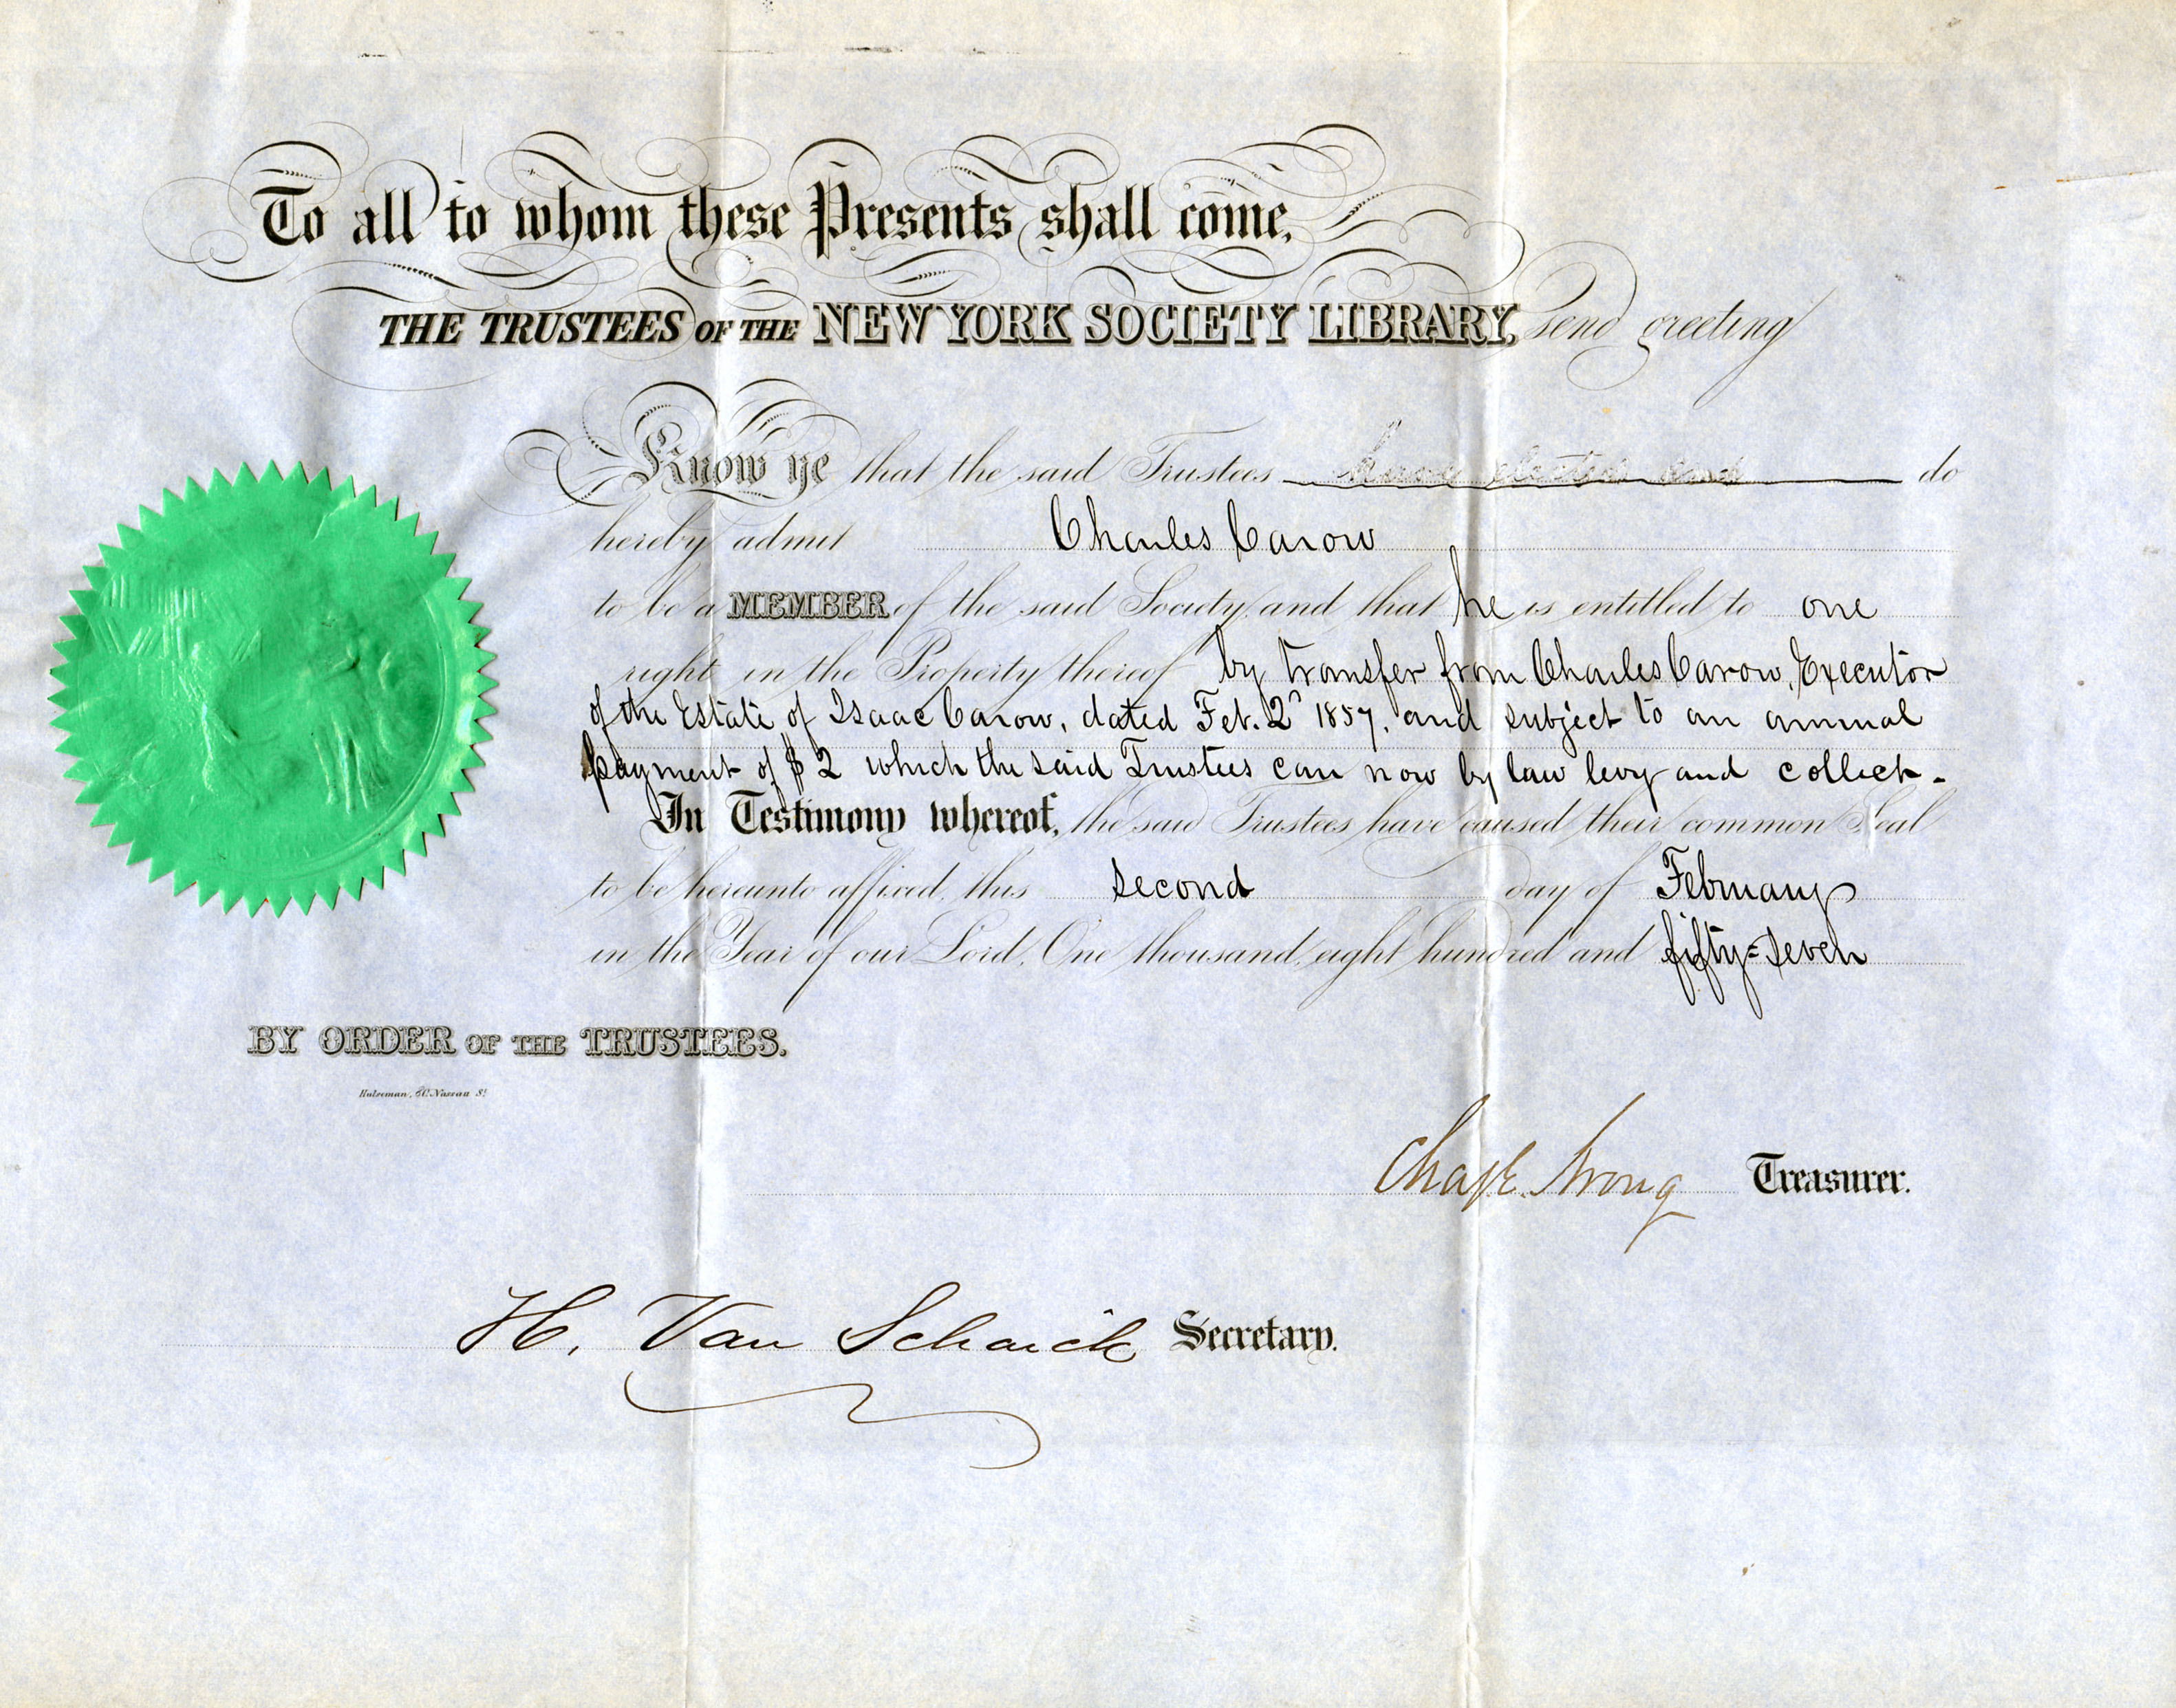 To all to whom these Presents shall come,
THE TRUSTEES OF THE NEW YORK SOCIETY LIBRARY, send greeting
Know ye that the said Trustees have elected and do
hereby admit Charles Carow
to be a MEMBER of the said Society, and that he is entitled to one
right in the Property thereof by transfer from Charles Carow, Executor
of the Estate of Isaac Carow, dated Feb. 2d 1857, and subject to an annual
payment of $2 which the said Trustees can now by law levy and collect.
In Testimony whereof, the said Trustees have caused their common Seal
to be hereunto affixed, this second day of February
in the Year of our Lord, One thousand, eight hundred and fifty=seven
BY ORDER OF THE TRUSTEES.
Hulseman, Nassau St
Strong Treasurer.
H. Van Schaick Secretary.